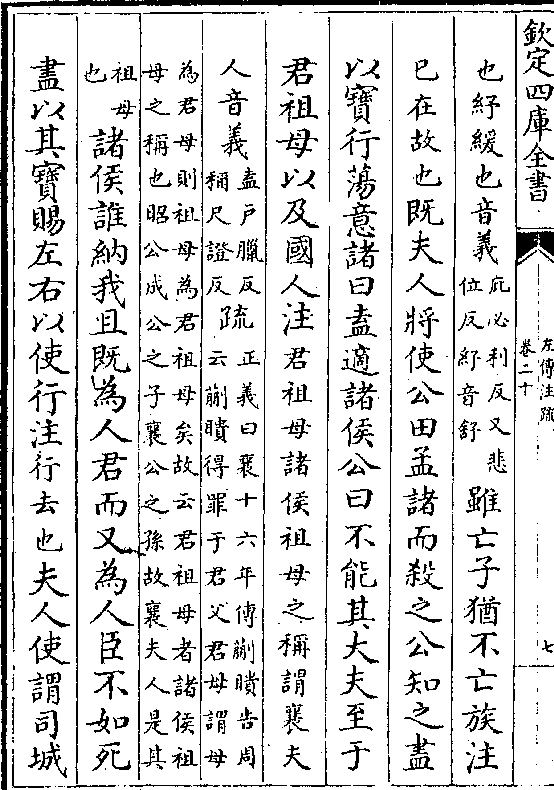 欽定四庫全書
左傳注疏
卷二十
七
也紓緩也音義庇必利反又悲
位反紓音舒
雖亡子猶不亡族注
已在故也既夫人將使公田孟諸而殺之公知之盡
以寶行蕩意諸曰盍適諸侯公曰不能其大夫至于
君祖母以及國人注君祖母諸侯祖母之稱謂襄夫
人音義盍戸臘反
稱尺證反
疏正義曰襄十六年傳蒯聵告周
云蒯聵得罪于君父君母謂母
為君母則祖母為君祖母矣故云君祖母者諸侯祖
母之稱也昭公成公之子襄公之孫故襄夫人是其
祖母
也
諸侯誰納我且既為人君而又為人臣不如死
盡以其寶賜左右以使行注行去也夫人使謂司城